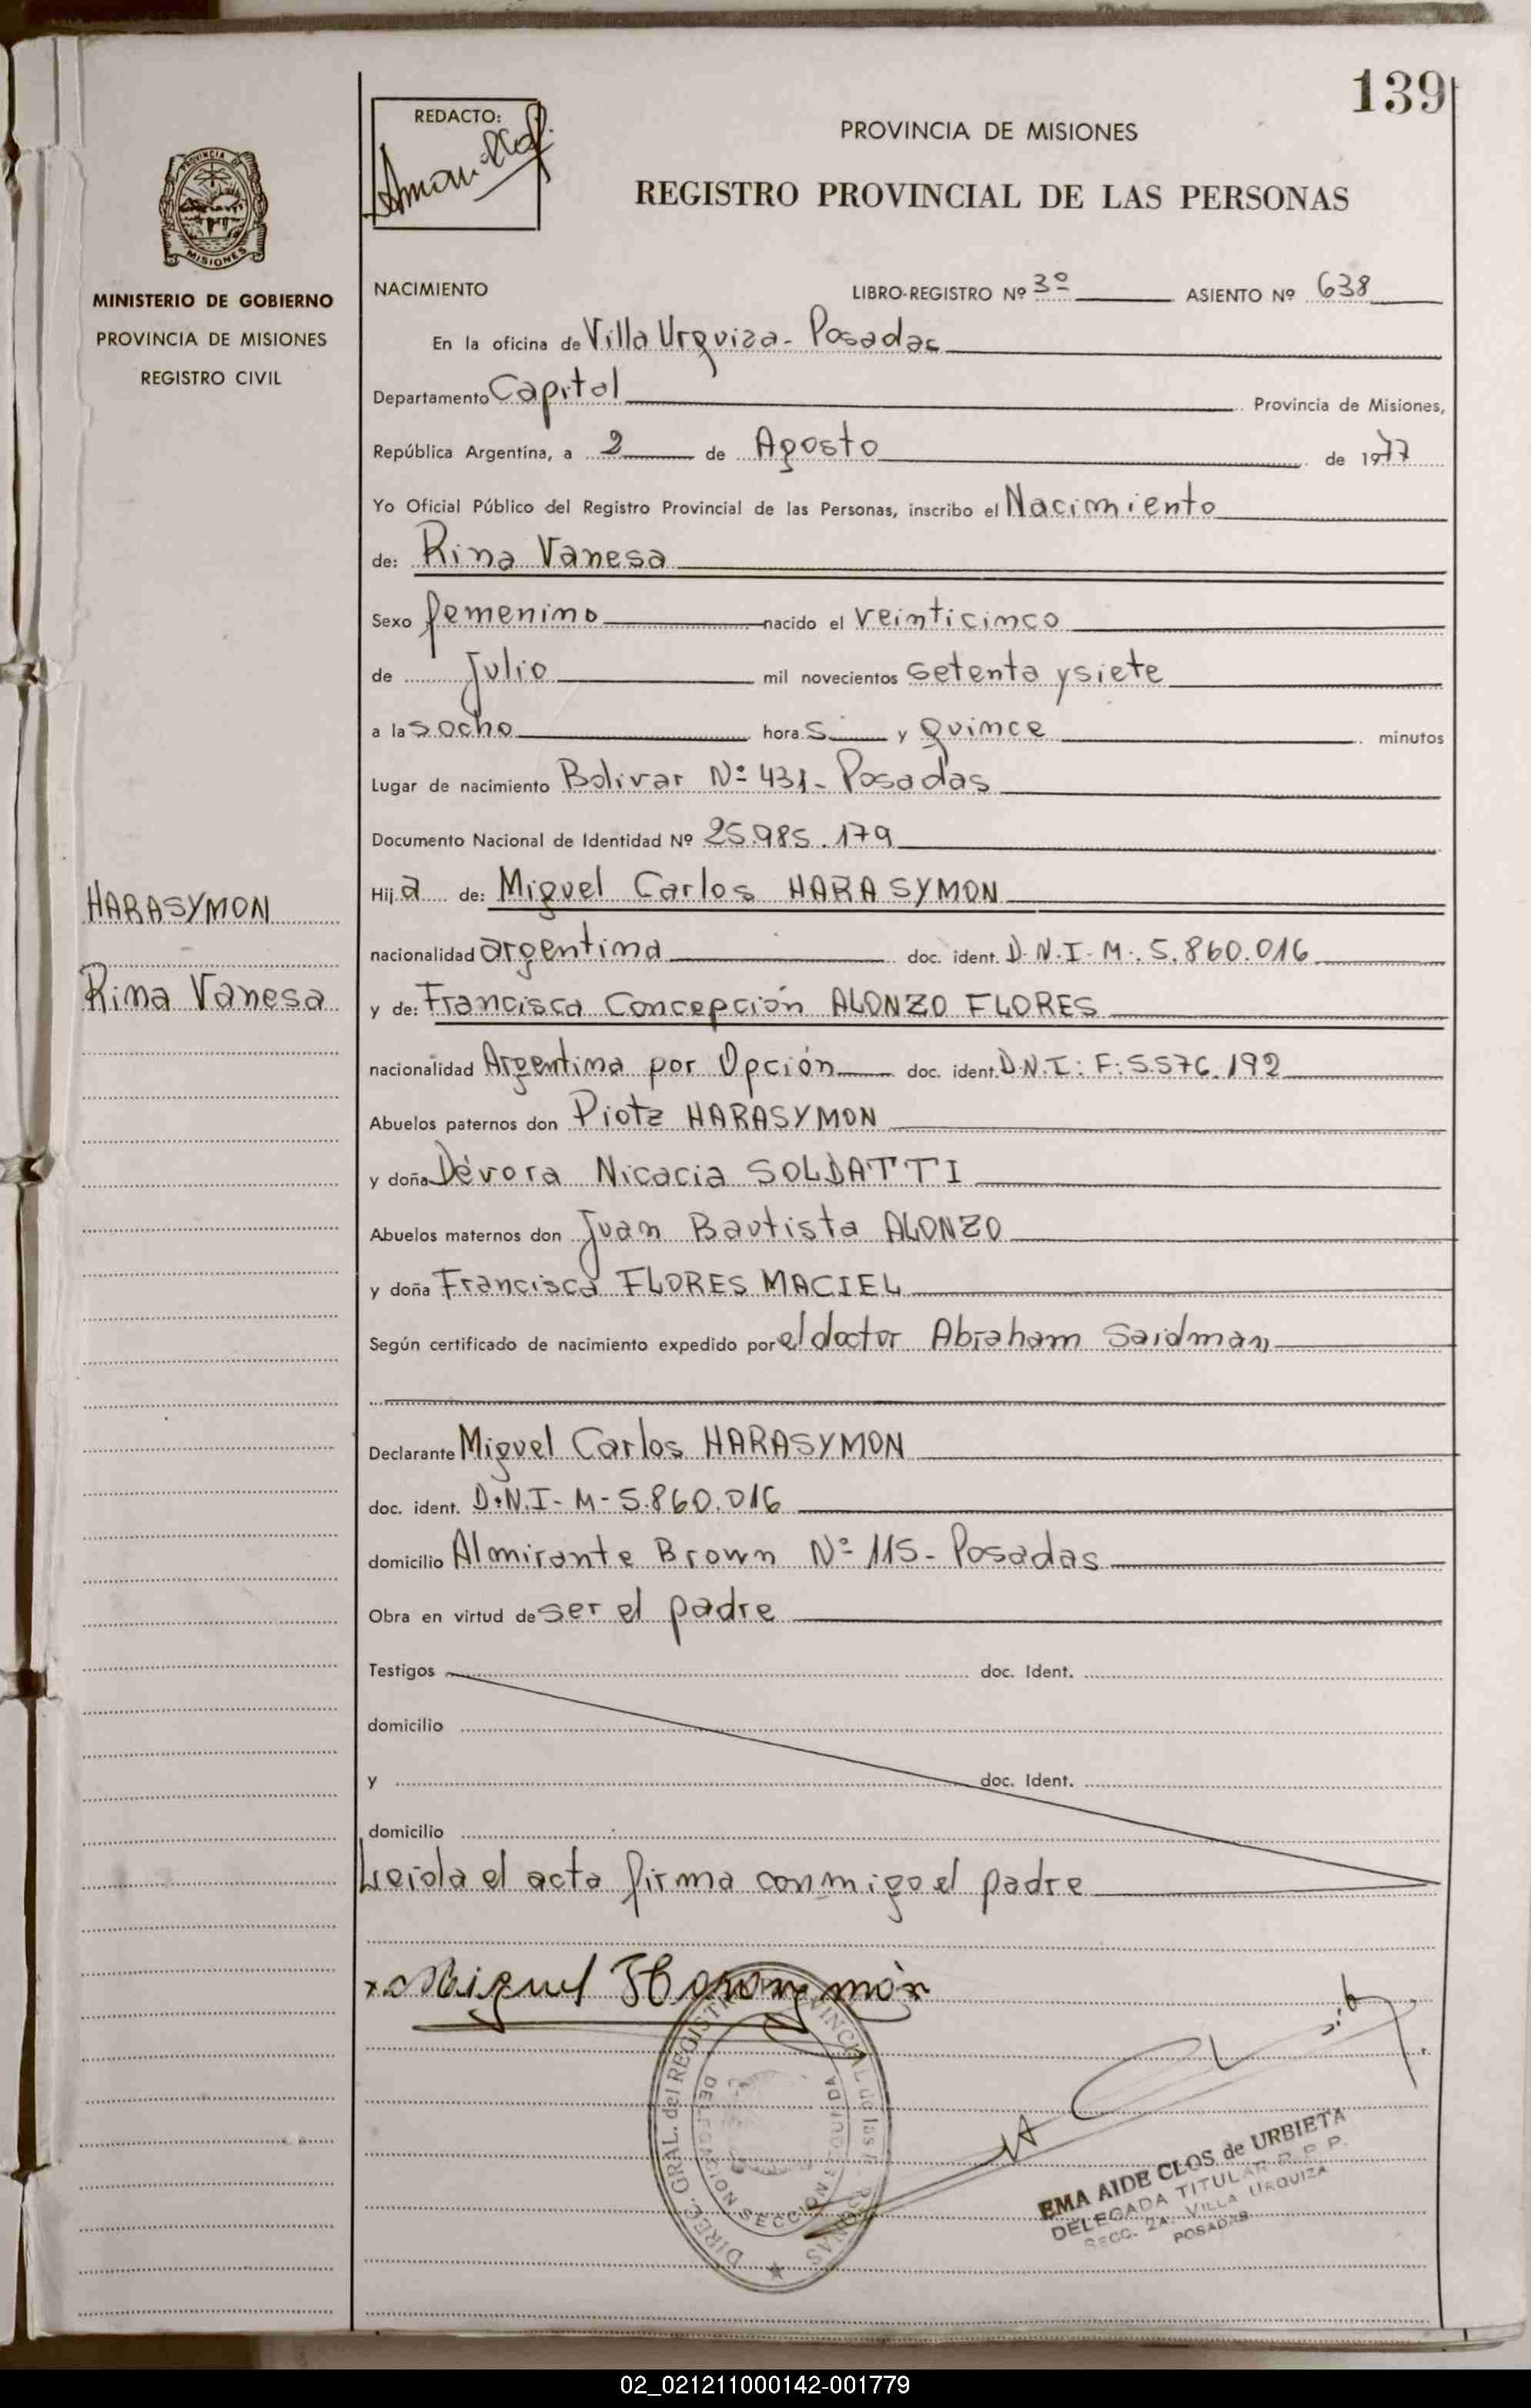 139
REDACTO:
PROVINCIA DE MISIONES
REGISTRO PROVINCIAL DE LAS PERSONAS
PROVINCIA DE MISIONES
MINISTERIO DE GOBIERNO
PROVINCIA DE MISIONES
REGISTRO CIVIL
NACIMIENTO LIBRO-REGISTRO Nº 3º ASIENTO Nº 638
En la oficina de Villa Urquiza - Posadas
Departamento Capital Provincia de Misiones,
República Argentina, a 2 de Agosto de 1977
Yo Oficial Público del Registro Provincial de las Personas, inscribo el Nacimiento
de: Rina Vanesa
Sexo femenino nacido el veinticinco
de Julio mil novecientos setenta y siete
a las ocho horas y quince minutos
Lugar de nacimiento Bolivar Nº 431 - Posadas
Documento Nacional de Identidad Nº 25.985.179
HARASYMON
Rina Vanesa
Hija de: Miguel Carlos HARASYMON
nacionalidad argentina doc. ident. D.N.I-M-. 5.860.016
y de: Francisca Concepción ALONZO FLORES
nacionalidad Argentina por Opción doc. ident. D.N.I: F: 5.576.192
Abuelos paternos don Piotz HARASYMON
y doña Dévora Nicacia SOLDATTI
Abuelos maternos don Juan Bautista ALONZO
y doña Francisca FLORES MACIEL
Según certificado de nacimiento expedido por el doctor Abraham Saidman
Declarante Miguel Carlos HARASYMON
doc. ident. D.N.I-M-5.860.016
domicilio Almirante Brown Nº 115 - Posadas
Obra en virtud de ser el padre
Testigos doc. Ident.
domicilio
y doc. Ident.
domicilio
Leida el acta firma conmigo el padre
Miguel Harasymón
DIREC. GRAL. del REGISTRO PROVINCIAL de las PERSONAS
DELEGACION SECCION SEGUNDA
EMA AIDE CLOS de URBIETA
DELEGADA TITULAR R. P. P.
SECC. 2A. VILLA URQUIZA
POSADAS
02_021211000142-001779